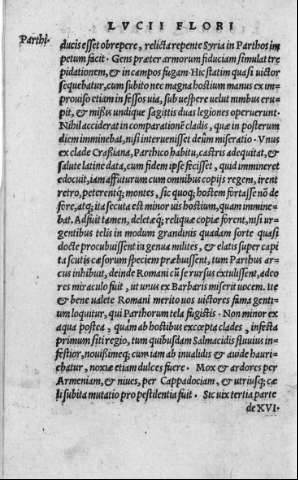 LVCII FLORI
Parthi.
ducis esset obrepere, relicta repente Syria in Parthos im
petum facit. Gens præter armorum fiduciam simulat tre
pidationem, & in campos fugam. Hic statim quasi uictor
sequebatur, cum subito nec magna hostium manus ex im
prouiso etiam in fessos uia, sub uespere uelut nimbus eru-
pit, & mißis undique sagittis duas legiones operuerunt.
Nihil acciderat in comparatione cladis, quæ in posterum
diem imminebat, nisi interuenisset deûm miseratio. Vnus
ex clade Crassiana, Parthico habitu, castris adequitat, &
salute latine data, cum fidem ipse fecisset, quid immineret
edocuit, iam affuturum cum omnibus copijs regem, irent
retro, peterentq; montes, sic quoq; hostem fortasse nõ de
fore, atq; ita secuta est minor uis hostium, quam immine-
bat. Adfuit tamen, deletæq; reliquæ copiæ forent, nisi ur
gentibus telis in modum grandinis quadam sorte quasi
docte procubuissent in genua milites, & elatis super capi
ta scutis cæsorum speciem præbuissent, tum Parthus ar
cus inhibuit, deinde Romani cũ se rursus extulissent, adeo
res miraculo fuit, ut unus ex Barbaris miserit uocem. Ite
& bene ualete Romani merito uos uictores fama genti
um loquitur, qui Parthorum tela fugistis. Non minor ex
aqua postea, quàm ab hostibus excepta clades, infesta
primum siti regio, tum quibusdam Salmacidis fluuius in
festior, nouißimeq; cum iam ab inualidis & auide hauri-
ebatur, noxiæ etiam dulces fuere. Mox & ardores per
Armeniam, & niues, per Cappadociam, & utriusq; cæ
li subita mutatio pro pestilentia fuit. Sic uix tertia parte
de XVI.